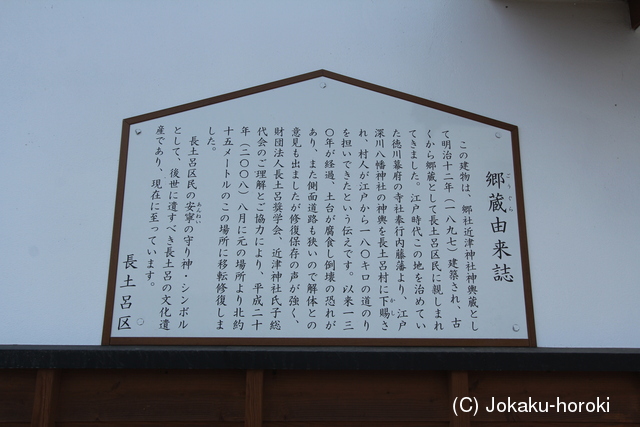 郷蔵由来誌
ごうぐら
この建物は、郷社近津神社神輿蔵とし
て明治十二年(一八九七)建築され、古
くから郷蔵として長土呂区民に親しまれ
てきました。江戸時代この地を治めてい
た徳川幕府の寺社奉行内藤藩より、江戸
深川八幡神社の神輿を長土呂村に下賜さ
かし
れ、村人が江戸から一八〇キロの道のり
を担いできたという伝えです。以来一三
〇年が経過、土台が腐食し倒壊の恐れが
あり、また側面道路も狭いので解体との
意見も出ましたが修復保存の声が強く、
財団法人長土呂奨学会、近津神社氏子総
代会のご理解とご協力により、平成二十
年(二〇〇八)八月に元の場所より北約
十五メートルのこの場所に移転修復しま
した。
長土呂区民の安寧の守り神・シンボル
あんねい
として、後世に遺すべき長土呂の文化遺
産であり、現在に至っています。
長土呂区
(C) Jokaku-horoki